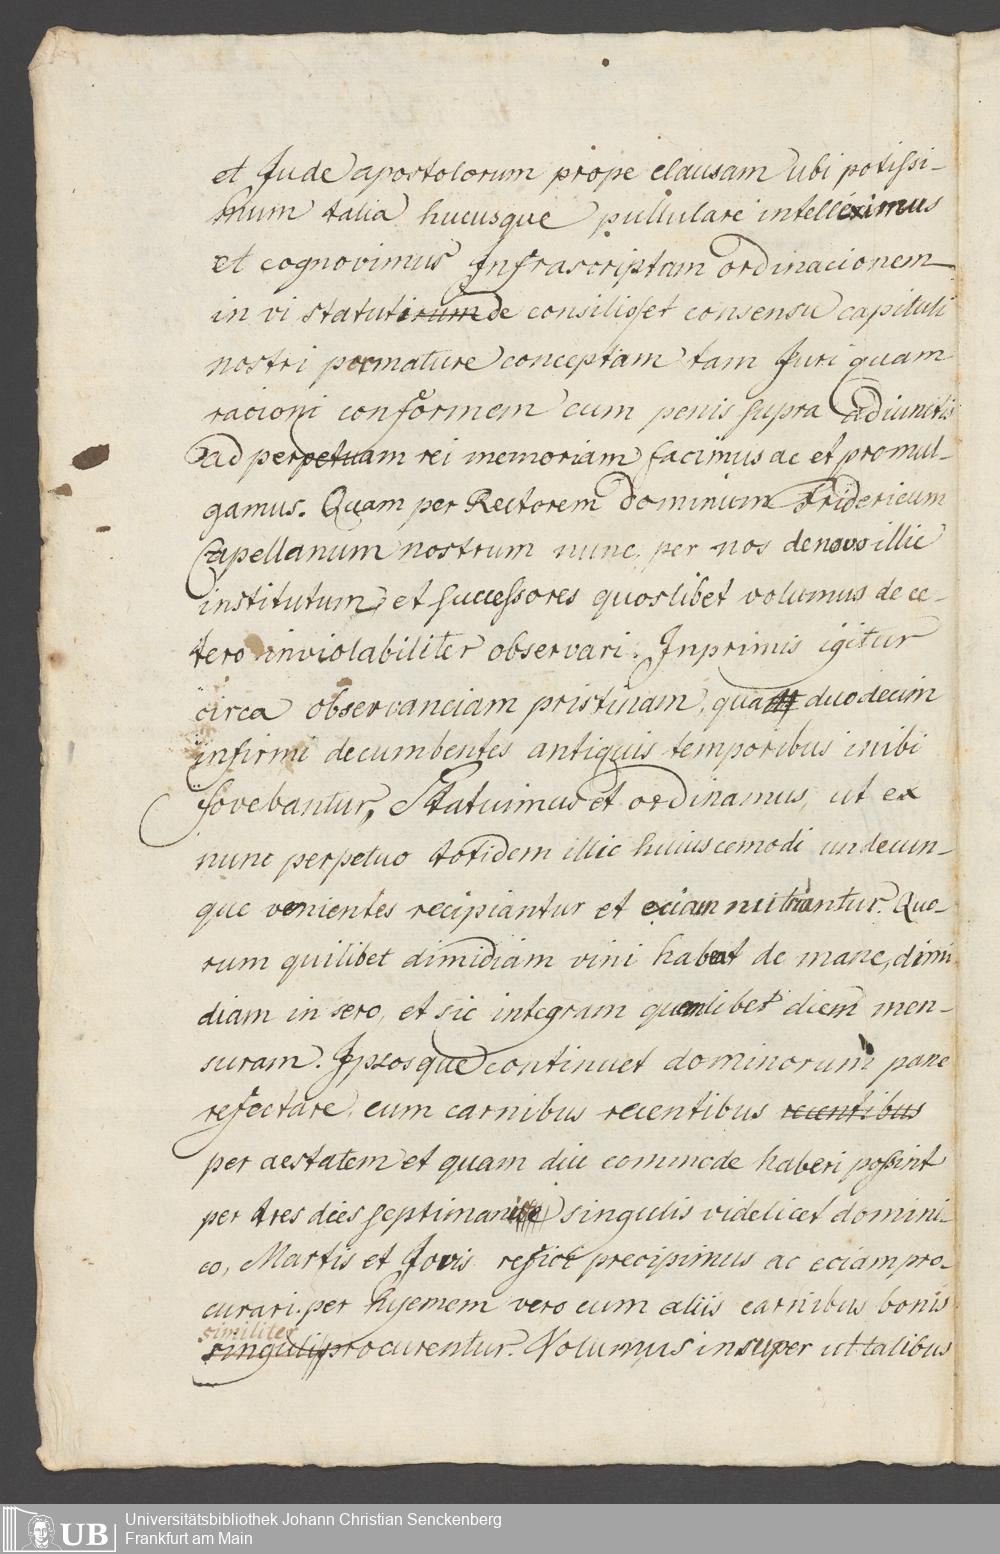 et Jude apostolorum prope clausam ubi potissi-
mum talia hucusque pullulare intelleximus
et cognovimus Infrascriptam ordinacionem
in vi statutirum de consilio et consensu capituli
nostri premature conceptam tam Juri quam
racioni conformem cum penis supra adiunctis
ad perpetuam rei memoriam facimus ac et promul-
gamus. Quam per Rectorem dominum Fridericum
Capellanum nostrum nunc per nos denovo illic
institutum, et successores quoslibet volumus de ce-
tero inviolabiliter observari. Inprimis igitur
circa observanciam pristinam, qua duodecim
infirmi decumbentes antiquis temporibus inibi
fovebantur, Statuimus et ordinamus, ut ex
nunc perpetuo totidem illic huiuscemodi undecun-
que venientes recipiantur et eciam nutriantur. Quo-
rum quilibet dimidiam vini habeat de mane, dimi
diam in sero, et sic integram quemlibet diem men-
suram. Ipsosque continuet dominorum pane
refectare, cum carnibus recentibus recentibus
per aestatem et quam diu commode haberi possint
per tres dies septimanae singulis videlicet domini-
co, Martis et Jovis refici precipimus ac eciam pro-
curari. per hyemem vero cum aliis carnibus bonis
similiter
singulis procurentur. Volumus insuper ut talibus
Universitätsbibliothek Johann Christian Senckenberg
UB Frankfurt am Main